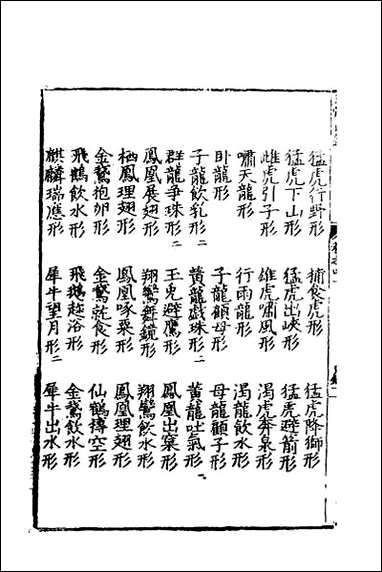 猛虎行野形 捕食虎形 猛虎降獅形
猛虎下山形 猛虎出峽形 猛虎避箭形
雌虎引子形 雄虎嘯風形 渴虎奔泉形
嘯天龍形 行雨龍形 渴龍飲水形
臥龍形 子龍顧母形 母龍顧子形
子龍飲乳形二 黃龍戲珠形二 黃龍吐氣形
群龍爭珠形二 玉兎避鷹形 鳳凰出窠形
鳳凰展翅形 翔鸞舞鏡形 翔鸞飲水形
栖鳳理翅形 鳳凰啄粟形 鳳凰理翅形
金鵞抱卵形 金鵞就食形 仙鶴摶空形
飛鵝飲水形 飛鵝趂浴形 金鵞飲水形
麒麟瑞應形 犀牛望月形二 犀牛出水形